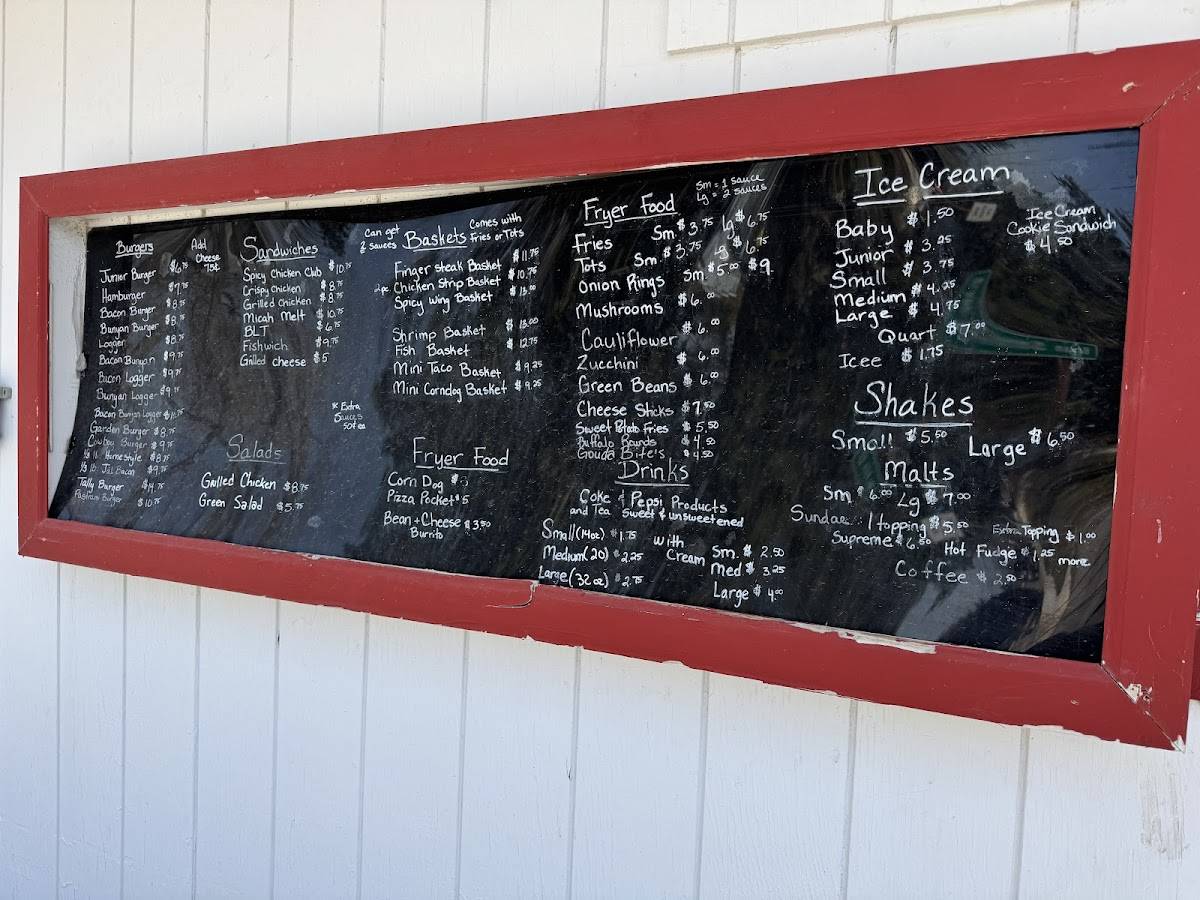 Burgers
Add
Cheese
75¢
Junior Burger $6.75
Hamburger $7.75
Bacon Burger $8.75
Bunyan Burger $8.75
Logger $8.75
Bacon Bunyan $9.75
Bacon Logger $9.75
Bunyan Logger $9.75
Bacon Bunyan Logger
Garden Burger $8.75
Cowboy Burger $9.75
1/3 lb Homestyle $8.75
1/3 lb Bacon $9.75
Tally Burger
Pastrami Burger $10.75
Sandwiches
Spicy Chicken Club $10.75
Crispy Chicken $8.75
Grilled Chicken $8.75
Micah Melt $10.75
BLT $6.75
Fishwich $9.75
Grilled cheese $5
* Extra
Sauces
50¢ ea
Salads
Grilled Chicken $8.75
Green Salad $5.75
can get
2 sauces
Baskets
Comes with
Fries or Tots
Finger steak Basket $11.75
2pc Chicken Strip Basket $10.75
Spicy Wing Basket $13.00
Shrimp Basket $13.00
Fish Basket $12.75
Mini Taco Basket $9.25
Mini Corndog Basket $9.25
Fryer Food
Corn Dog $5
Pizza Pocket $5
Bean + Cheese $3.50
Burrito
Fryer Food
Sm = 1 sauce
Lg = 2 sauces
Fries Sm $3.75 lg $6.75
Tots Sm $3.75 lg $6.75
Onion Rings Sm $5.00 $9.
Mushrooms $6.00
Cauliflower $6.00
Zucchini $6.00
Green Beans $6.00
Cheese Sticks $7.50
Sweet Potato Fries $5.50
Buffalo Rounds $4.50
Gouda Bite's $4.50
Drinks
Coke & Pepsi Products
and Tea Sweet & unsweetened
Small (14oz) $1.75
Medium (20) $2.25
Large (32oz) $2.75
with
Cream
Sm. $2.50
Med $3.25
Large $4.00
Ice Cream
Baby $1.50
Junior $3.25
Small $3.75
Medium $4.25
Large $4.75
Quart $7.00
Icee $1.75
Ice Cream
Cookie Sandwich
$4.50
Shakes
Small $5.50 Large $6.50
Malts
Sm $6.00 Lg $7.00
Sundae 1 topping $5.50
Supreme $6.50
Extra Topping $1.00
Hot Fudge $1.25
more
Coffee $2.50